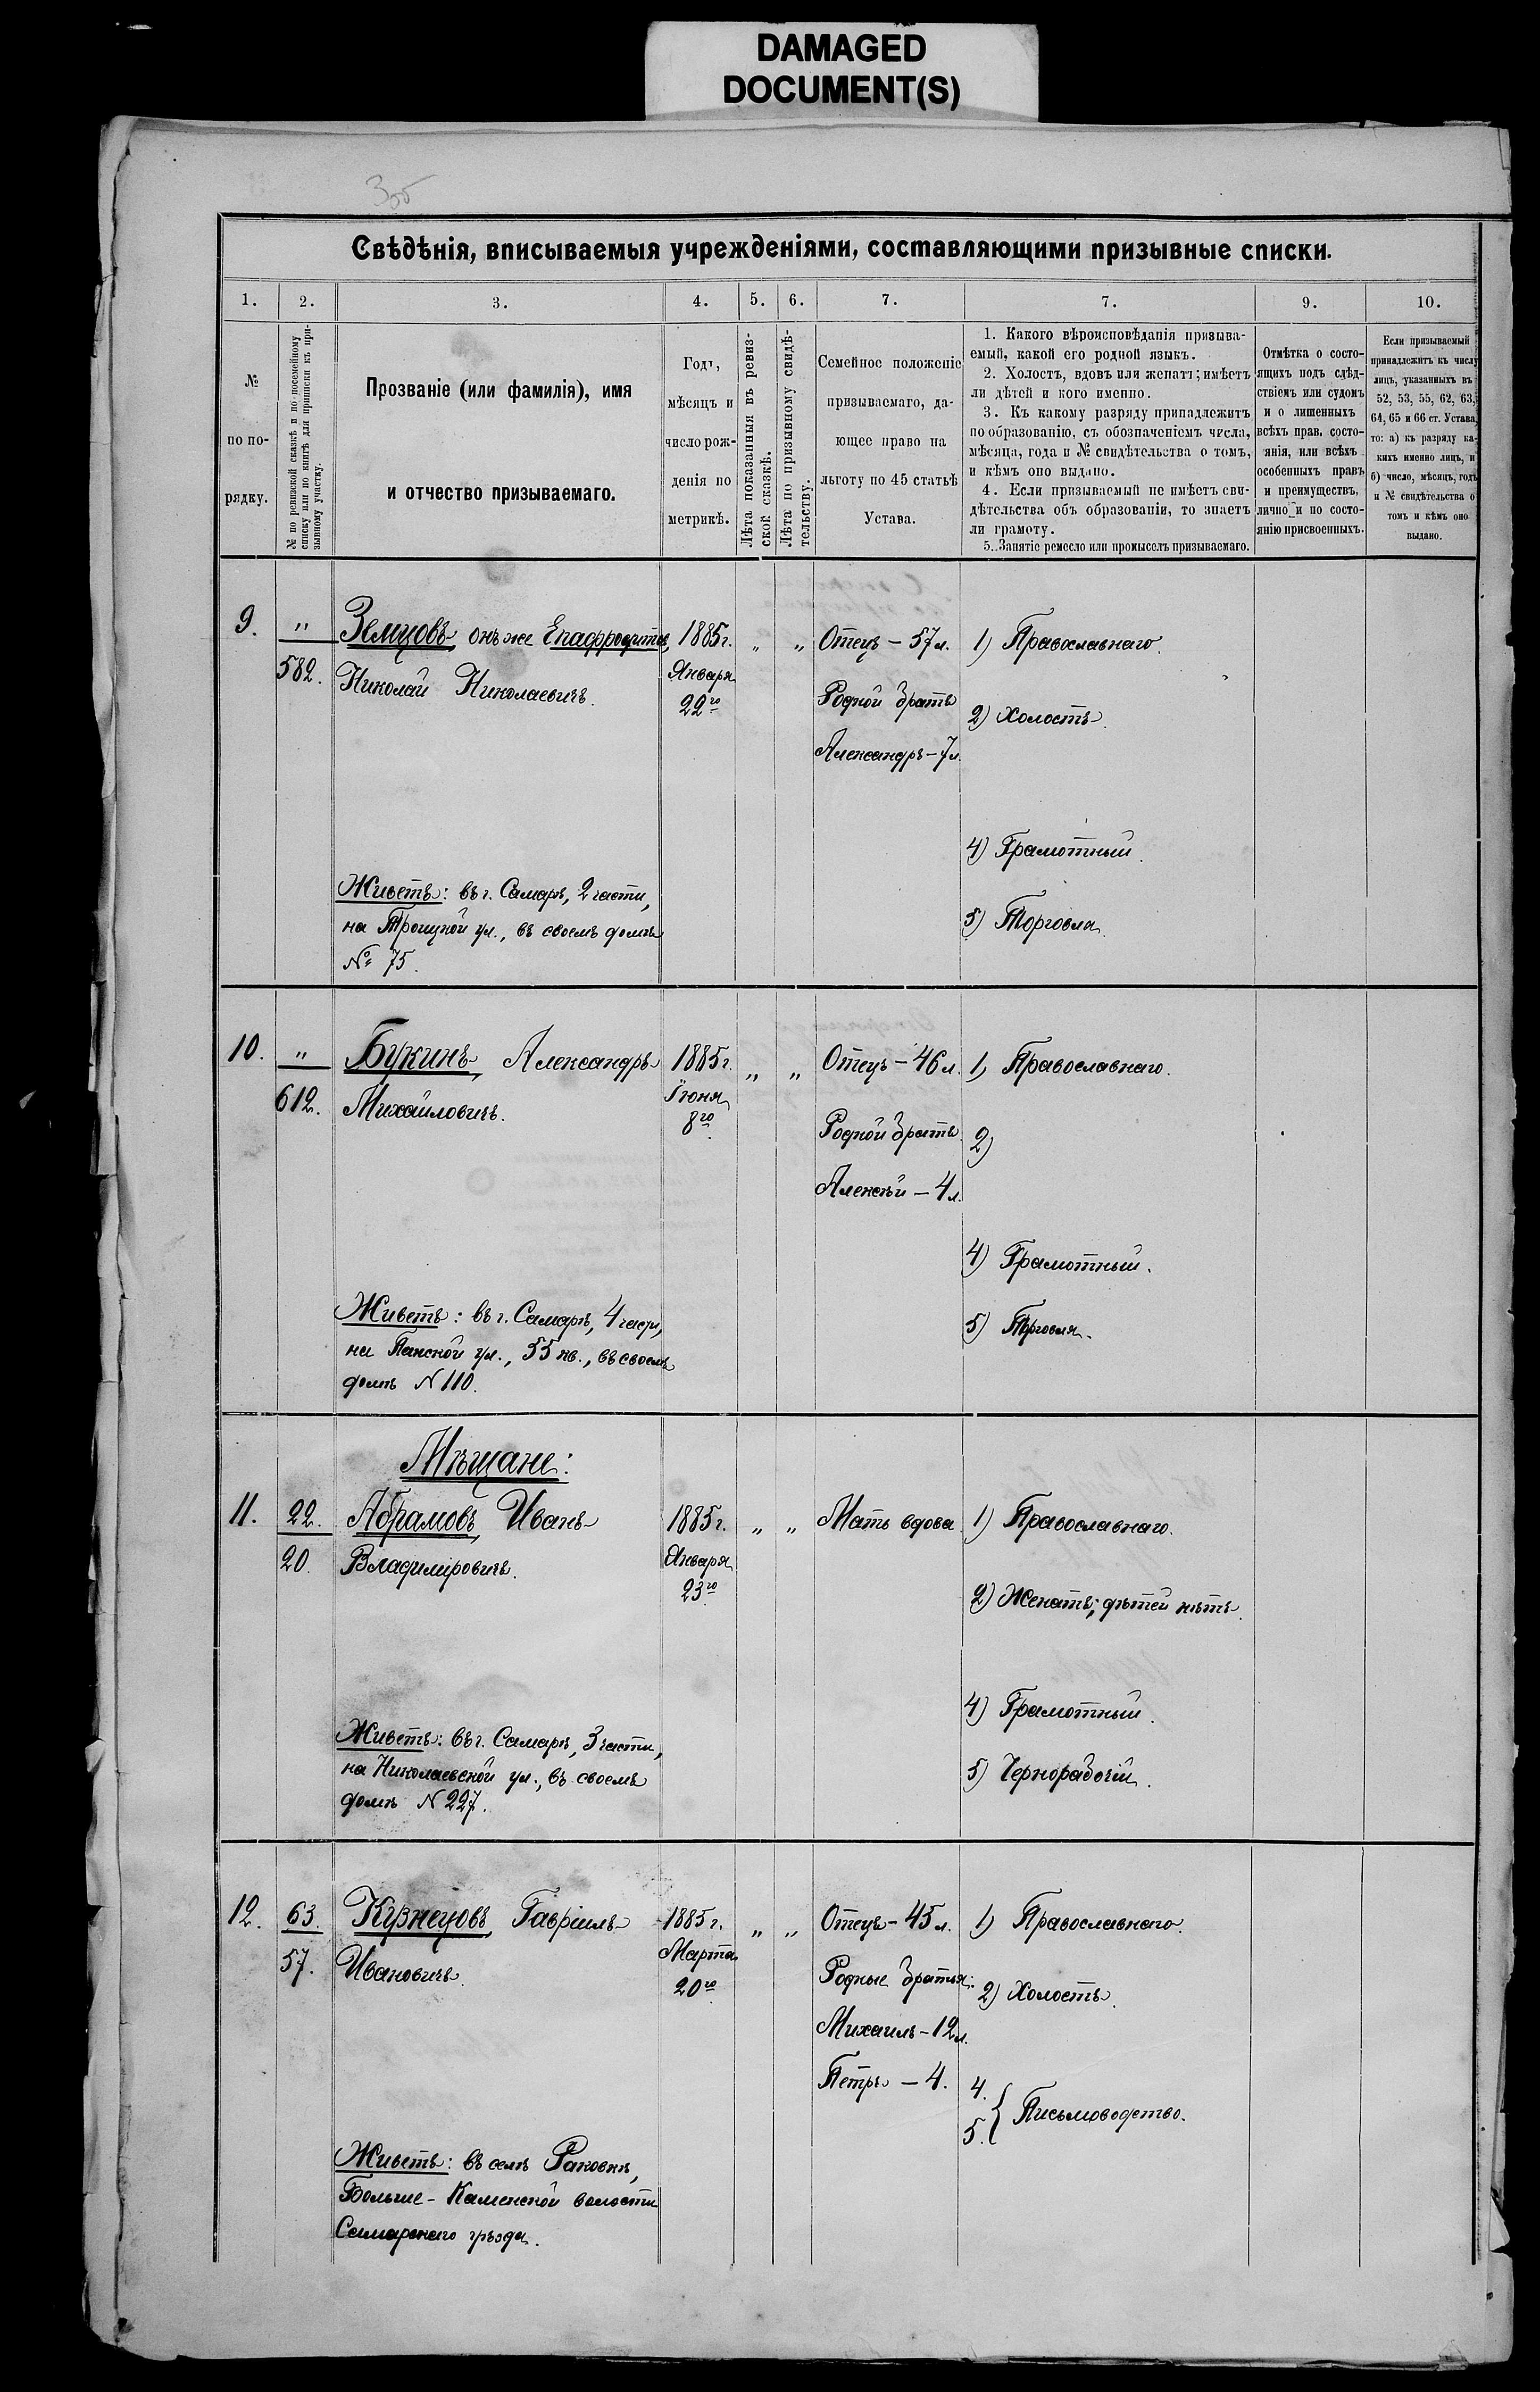 DAMAGED
DOCUMENT(S)
Свѣдѣнія, вписываемыя учрежденіями, составляющими призывные списки.
1. 2. 3. 4. 5. 6. 7. 7. 9. 10.
№
по по-
рядку.
№ по ревизской сказкѣ и по посемейному
списку или по книгѣ для приписки къ при-
зывному участку.
Прозваніе (или фамилія), имя
и отчество призываемаго.
Годъ,
мѣсяцъ и
число рож-
денія по
метрикѣ.
Лѣта показанныя въ ревиз-
ской сказкѣ.
Лѣта по призывному свидѣ-
тельству.
Семейное положеніе
призываемаго, да-
ющее право на
льготу по 45 статьѣ
Устава.
1. Какого вѣроисповѣданія призыва-
емый, какой его родной языкъ.
2. Холостъ, вдовъ или женатъ; имѣетъ
ли дѣтей и кого именно.
3. Къ какому разряду принадлежитъ
по образованію, съ обозначеніемъ числа,
мѣсяца, года и № свидѣтельства о томъ,
и кѣмъ оно выдано.
4. Если призываемый не имѣетъ сви-
дѣтельства объ образованіи, то знаетъ
ли грамоту.
5. Занятіе ремесло или промыселъ призываемаго.
Отмѣтка о состо-
ящихъ подъ слѣд-
ствіемъ или судомъ
и о лишенныхъ
всѣхъ прав. состо-
янія, или всѣхъ
особенныхъ правъ
и преимуществъ,
лично и по состо-
янію присвоенныхъ.
Если призываемый
принадлежитъ къ числу
лицъ, указанныхъ въ
52, 53, 55, 62, 63,
64, 65 и 66 ст. Устава,
то: а) къ разряду ка-
кихъ именно лицъ, и
б) число, мѣсяцъ, годъ
и № свидѣтельства о
томъ и кѣмъ оно
выдано.
9. " Земцовъ, онъ же Епафродитовъ, 1885 г. " " Отецъ – 57 л. 1) Православнаго.
582. Николай Николаевичъ. Января
22го Родной братъ 2) Холостъ.
Александръ – 7 л.
4) Грамотный.
Живетъ: въ г. Самарѣ, 2 части,
на Троицкой ул., въ своемъ домѣ 5) Торговля.
№ 75.
10. " Букинъ, Александръ 1885 г. " " Отецъ – 46 л. 1) Православнаго.
612. Михайловичъ. Іюня
8го Родной братъ 2)
Алексѣй – 4 л.
4) Грамотный.
Живетъ: въ г. Самарѣ, 4 части, 5) Торговля.
на Панской ул., 55 кв., въ своемъ
домѣ N 110.
Мѣщане:
11. 22. Абрамовъ, Иванъ 1885 г. " " Мать вдова 1) Православнаго.
20. Владиміровичъ. Января
23го 2) Женатъ; дѣтей нѣтъ.
4) Грамотный.
Живетъ: въ г. Самарѣ, 3 части,
на Николаевской ул., въ своемъ 5) Чернорабочій.
домѣ N 227.
12. 63. Кузнецовъ, Гавріилъ 1885 г. " " Отецъ – 45 л. 1) Православнаго.
57. Ивановичъ. Марта Родные братья:
20го 2) Холостъ.
Михаилъ – 12 л.
Петръ – 4. 4.
5. } Письмоводство.
Живетъ: въ селѣ Раковкѣ,
Больше-Каменской волости
Самарскаго уѣзда.